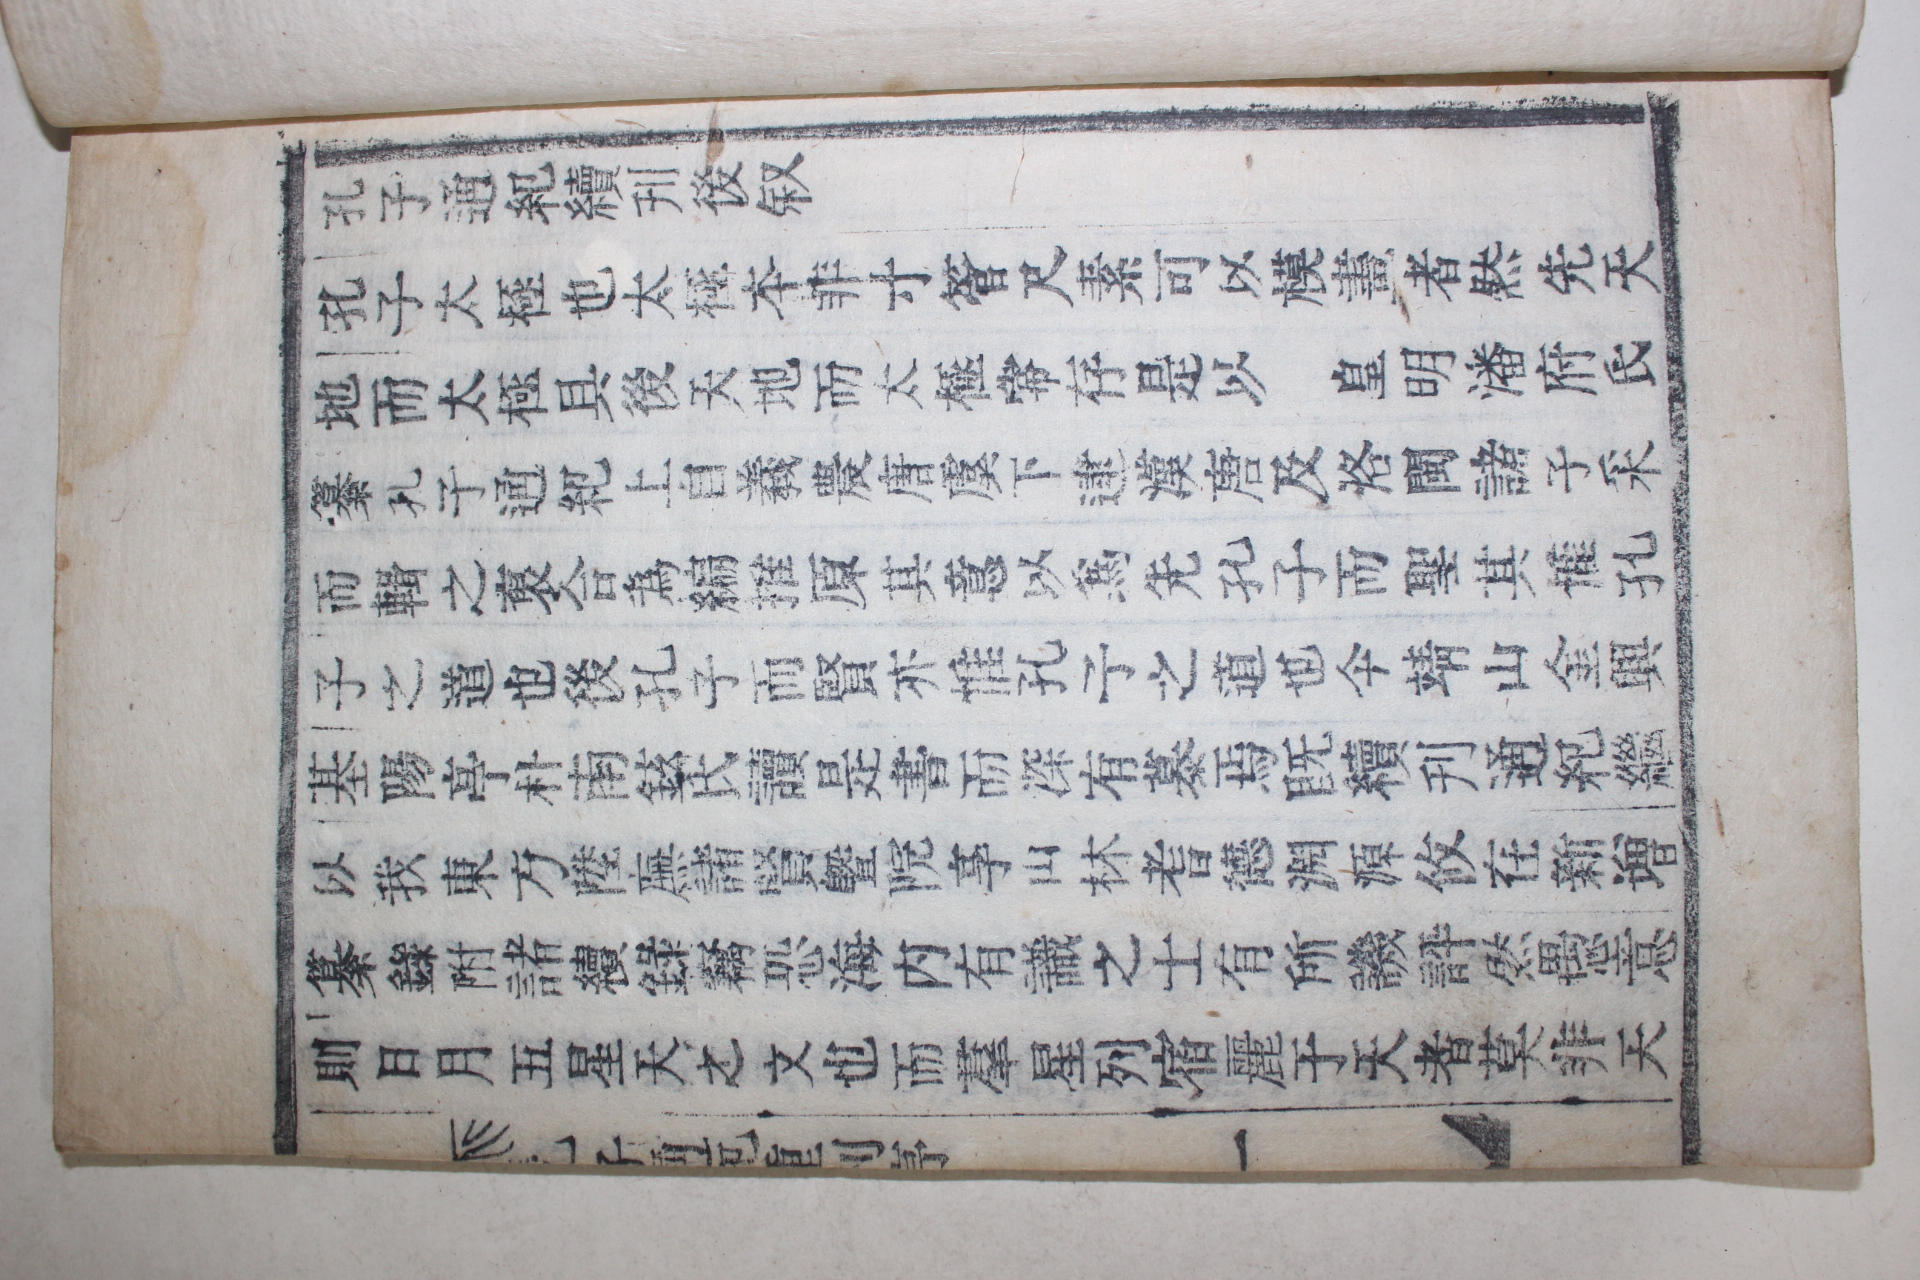 孔子通紀續刊後叙
孔子太極也太極本非寸管尺素可以模畫者然先天
地而太極具後天地而太極常存是以　皇明潘府氏
纂孔子通紀上自羲農唐虞下逮漢唐及洛閩諸子采
而輯之裒合為編推原其意以為先孔子而聖其惟孔
子之道也後孔子而賢亦惟孔子之道也今靖山金興
基陽亭朴南鉉氏讀是書而深有慕焉旣續刊通紀繼
以我東方陞廡諸賢曁院享山林耆德淵源攸在新增
纂錄附諸續錄竊恐海內有識之士有所譏評然愚意
則日月五星天之文也而羣星列宿麗于天者莫非天
孔子通紀重刊序
一